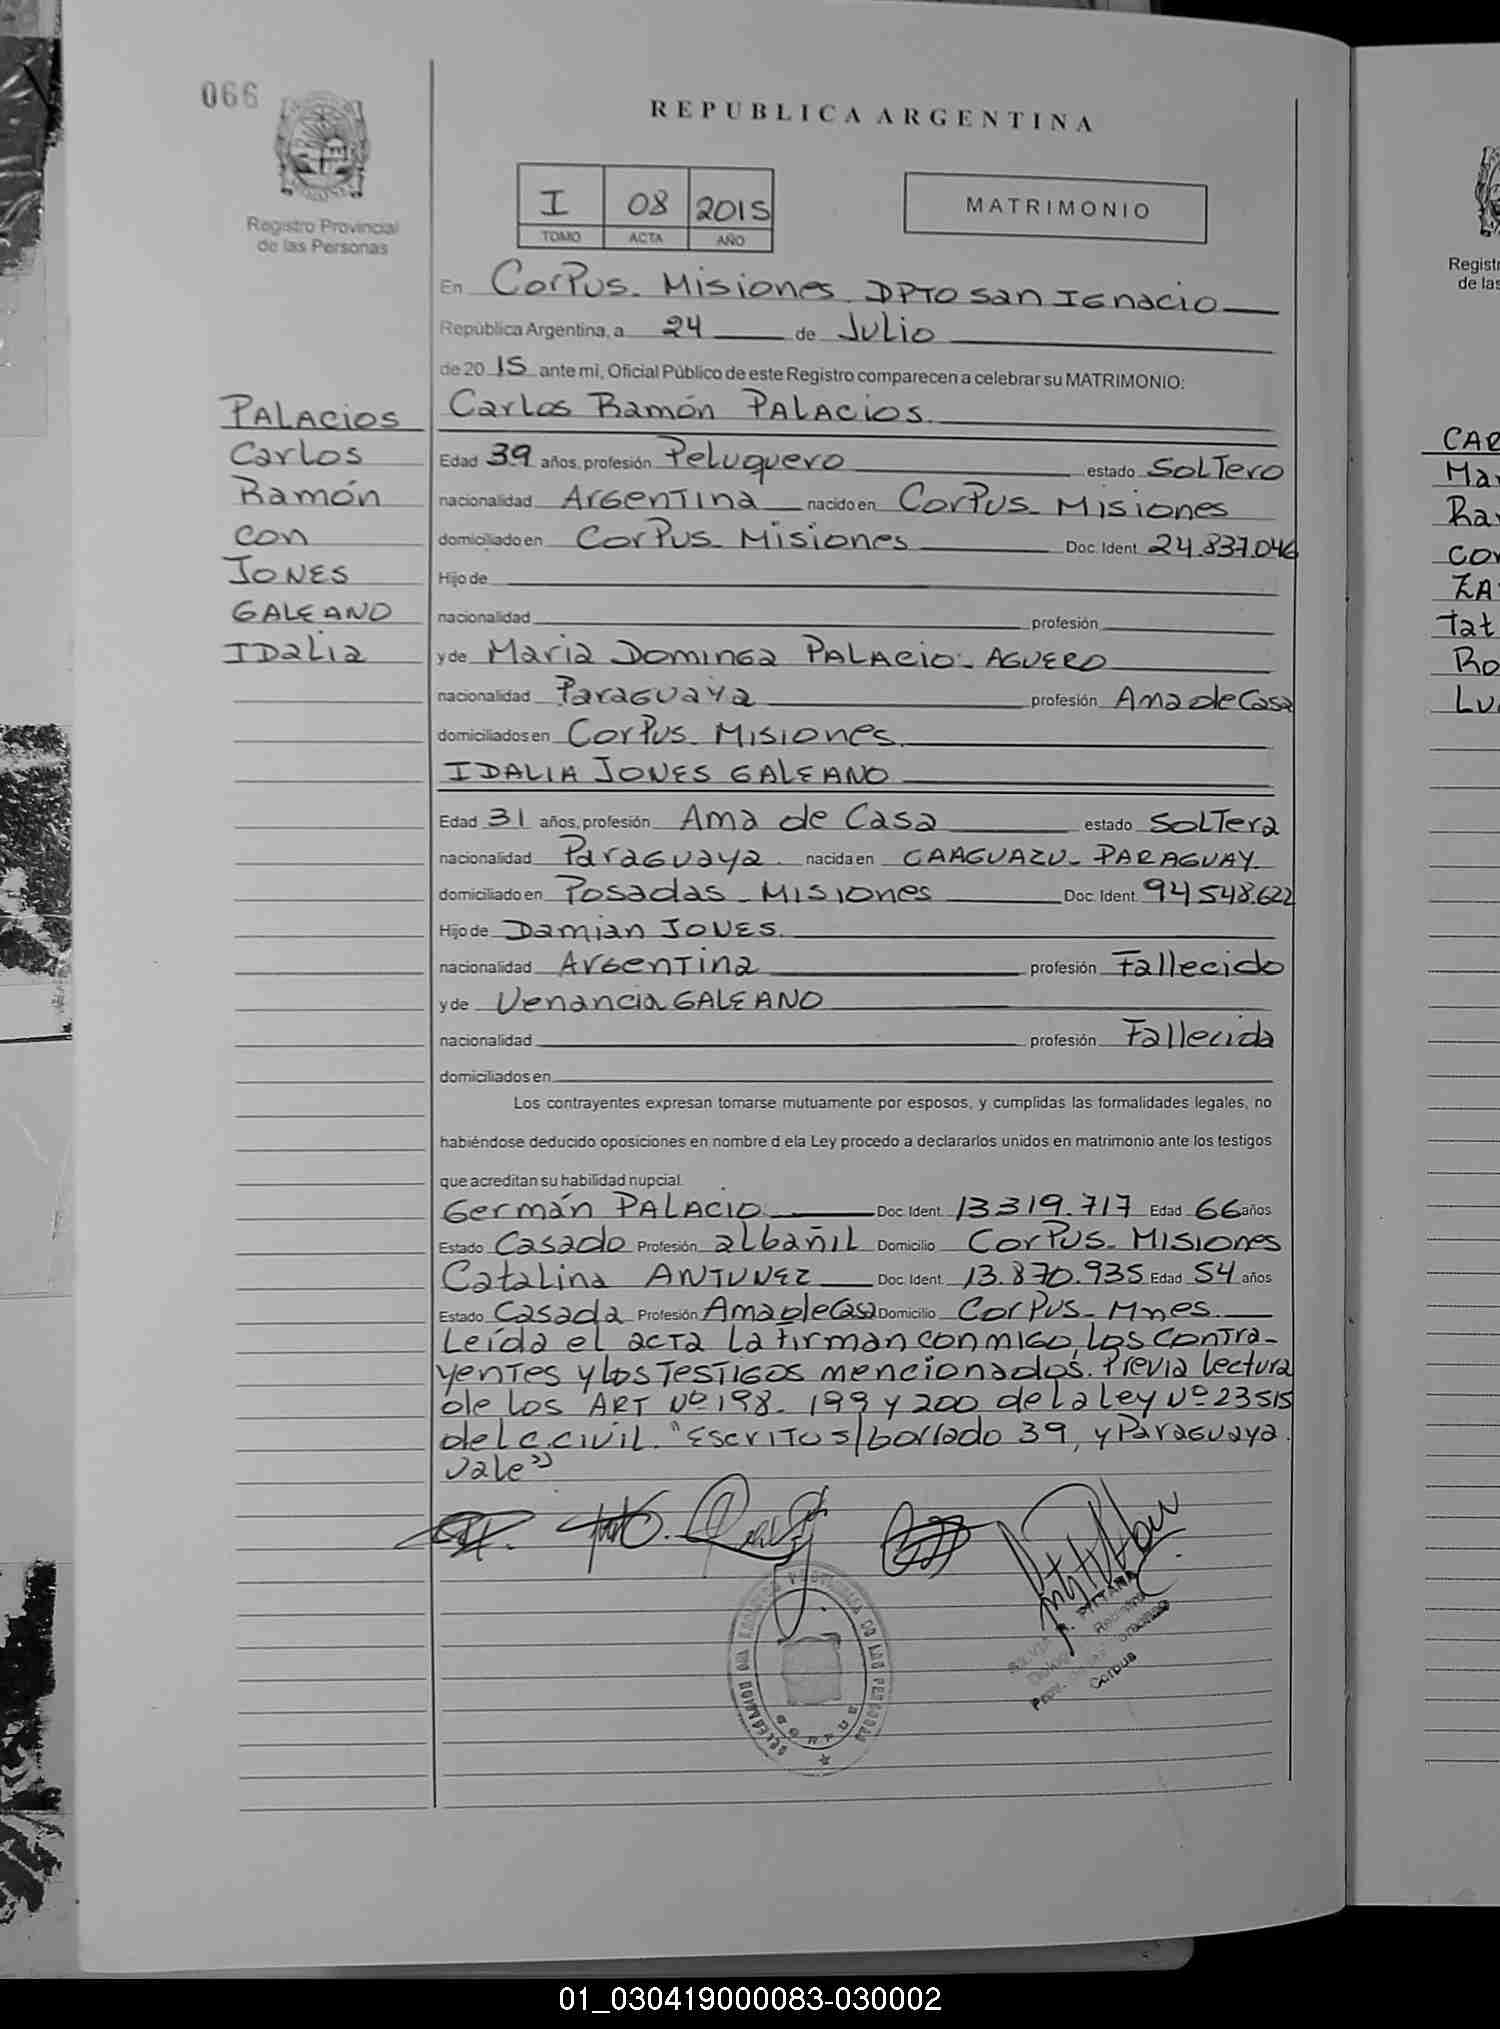 066
REPUBLICA ARGENTINA
Registro Provincial
de las Personas
I 08 2015
TOMO ACTA AÑO
MATRIMONIO
En Corpus - Misiones DPTO San Ignacio
República Argentina, a 24 de Julio
de 2015 ante mi, Oficial Público de este Registro comparecen a celebrar su MATRIMONIO:
PALACIOS
Carlos
Ramón
con
JONES
GALEANO
IDALIA
Carlos Ramón PALACIOS.
Edad 39 años, profesión Peluquero estado SOLTERO
nacionalidad Argentina nacido en Corpus - Misiones
domiciliado en Corpus - Misiones Doc. Ident. 24.837.046
Hijo de
nacionalidad profesión
y de Maria Dominga PALACIO - AGUERO
nacionalidad Paraguaya profesión Ama de Casa
domiciliados en Corpus - Misiones.
IDALIA JONES GALEANO
Edad 31 años, profesión Ama de Casa estado SOLTERA
nacionalidad Paraguaya. nacida en CAAGUAZU - PARAGUAY
domiciliado en Posadas - Misiones Doc. Ident. 94548.622
Hijo de Damian JONES.
nacionalidad Argentina profesión Fallecido
y de Venancia GALEANO
nacionalidad profesión Fallecida
domiciliados en
Los contrayentes expresan tomarse mutuamente por esposos, y cumplidas las formalidades legales, no
habiéndose deducido oposiciones en nombre d ela Ley procedo a declararlos unidos en matrimonio ante los testigos
que acreditan su habilidad nupcial.
Germán PALACIO Doc. Ident. 13.319.717 Edad 66 años
Estado Casado Profesión albañil Domicilio Corpus - Misiones
Catalina ANTUNEZ Doc. Ident. 13.870.935 Edad 54 años
Estado Casada Profesión Ama de Casa Domicilio Corpus - Mnes.
Leída el acta la firman conmigo, los contra-
yentes y los testigos mencionados. Previa lectura
de los ART Nº 198 - 199 y 200 de la Ley Nº 23515
del C. Civil. "Escrito s/borrado 39, y Paraguaya.
Vale"
Corpus
Registr
de las
CAR
Mar
Ra
con
ZA
Tat
Ro
Lu
01_030419000083-030002